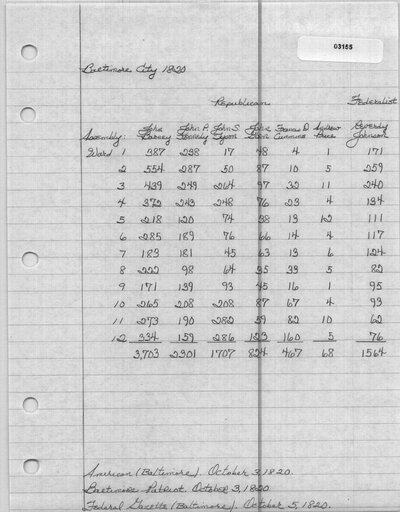 03165
Baltimore City 1820
Republican Federalist
John John P. John S. John Francis D. Andrew Reverdy
Assembly: Barney Kennedy Tyson Cummins Johnson
Ward 1 387 238 17 48 4 1 171
2 554 287 50 87 10 5 259
3 439 249 264 97 32 11 240
4 372 243 248 76 23 4 134
5 218 120 74 38 13 12 111
6 285 189 76 66 14 4 117
7 183 181 45 63 13 6 124
8 222 98 64 35 33 5 82
9 171 139 93 45 16 1 95
10 265 208 208 87 67 4 93
11 273 190 282 59 82 10 62
12 334 159 286 123 160 5 76
3,703 2301 1707 824 467 68 1564
American (Baltimore). October 3, 1820.
Baltimore Patriot. October 3, 1820.
Federal Gazette (Baltimore). October 5, 1820.